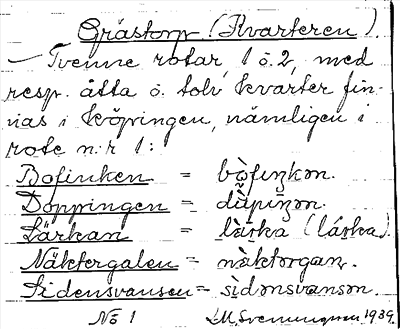 Grästorp (Kvarteren)
— Tvenne rotar, 1 o. 2, med
resp. åtta o. tolv kvarter fin-
nas i köpingen, nämligen i
rote n:r 1:
Bofinken = bòfiŋkən.
Doppingen = dùpiŋən.
Lärkan = làrka (lárka).
Näktergalen = nàktərgaṇ.
Sidensvansen = sìdənsvansən.
No 1 M. Svenungson 1939.